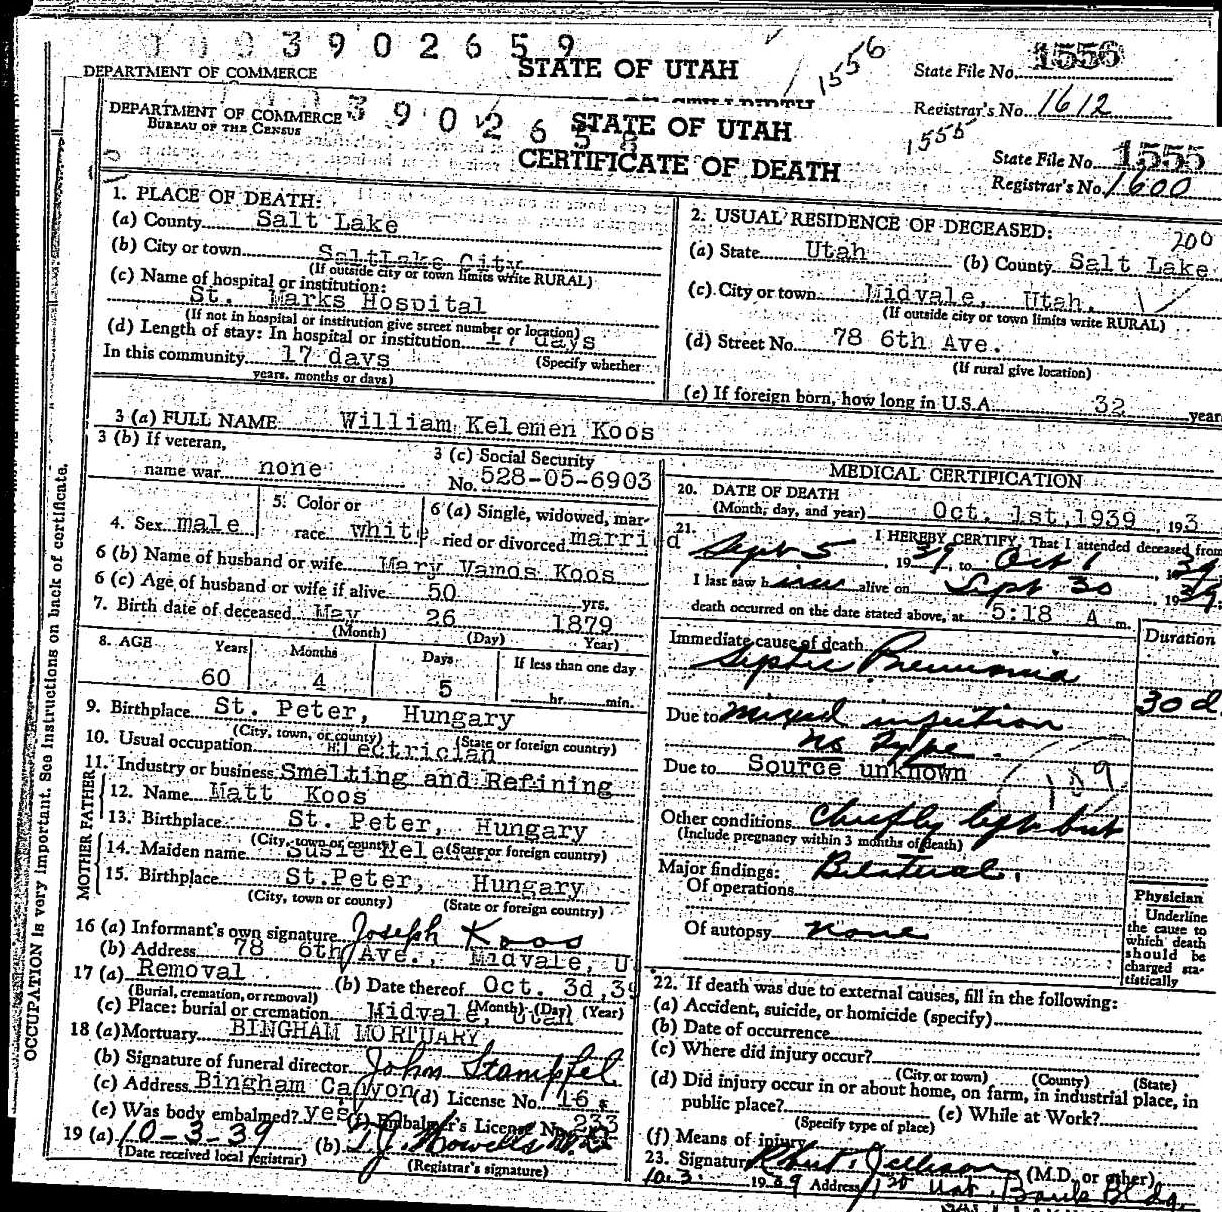 3902659
DEPARTMENT OF COMMERCE STATE OF UTAH 1556 State File No. 1556
Registrar's No. 1612
DEPARTMENT OF COMMERCE 3902658 STATE OF UTAH 1555
BUREAU OF THE CENSUS CERTIFICATE OF DEATH State File No. 1555
Registrar's No. 1600
1. PLACE OF DEATH:
(a) County Salt Lake
(b) City or town SaltLake City
(If outside city or town limits write RURAL)
(c) Name of hospital or institution:
St. Marks Hospital
(If not in hospital or institution give street number or location)
(d) Length of stay: In hospital or institution 17 days
(Specify whether
In this community 17 days
years, months or days)
2. USUAL RESIDENCE OF DECEASED: 200
(a) State Utah (b) County Salt Lake
(c) City or town Midvale, Utah.
(If outside city or town limits write RURAL)
(d) Street No. 78 6th Ave.
(If rural give location)
(e) If foreign born, how long in U.S.A. 32 year
3 (a) FULL NAME William Kelemen Koos
3 (b) If veteran, name war none
3 (c) Social Security No. 528-05-6903
4. Sex male
5. Color or race white
6 (a) Single, widowed, married or divorced married
6 (b) Name of husband or wife Mary Vamos Koos
6 (c) Age of husband or wife if alive 50 yrs.
7. Birth date of deceased May 26 1879
(Month) (Day) Year)
8. AGE Years Months Days If less than one day
60 4 5 hr. min.
9. Birthplace St. Peter, Hungary
(City, town, or county) (State or foreign country)
10. Usual occupation Electrician
11. Industry or business Smelting and Refining
FATHER
12. Name Matt Koos
13. Birthplace St. Peter, Hungary
(City, town or county) (State or foreign country)
MOTHER
14. Maiden name Susie Kelemen
15. Birthplace St.Peter, Hungary
(City, town or county) (State or foreign country)
16 (a) Informant's own signature Joseph Koos
(b) Address 78 6th Ave., Midvale, U
17 (a) Removal (b) Date thereof Oct. 3d,39
(Burial, cremation, or removal) (Month) (Day) (Year)
(c) Place: burial or cremation Midvale, Utah
18 (a) Mortuary BINGHAM MORTUARY
(b) Signature of funeral director John Stampfel
(c) Address Bingham Canyon (d) License No. 16
(e) Was body embalmed? yes (f) Embalmer's License No. 233
19 (a) 10-3-39 (b) T.J. Howells M.D.
(Date received local registrar) (Registrar's signature)
MEDICAL CERTIFICATION
20. DATE OF DEATH
(Month, day, and year) Oct. 1st,1939 193
21. I HEREBY CERTIFY, That I attended deceased from
Sept 5, 1939, to Oct 1, 1939
I last saw him alive on Sept 30, 1939.
death occurred on the date stated above, at 5:18 A m.
Immediate cause of death Duration
Septic Pneumonia 30 d
Due to mixed infection
no type.
Due to Source unknown 109
Other conditions Chiefly left but
(Include pregnancy within 3 months of death)
Major findings: Bilateral.
Of operations
Of autopsy none
Physician
Underline the cause to which death should be charged statistically
22. If death was due to external causes, fill in the following:
(a) Accident, suicide, or homicide (specify)
(b) Date of occurrence
(c) Where did injury occur?
(City or town) (County) (State)
(d) Did injury occur in or about home, on farm, in industrial place, in
public place? (e) While at Work?
(Specify type of place)
(f) Means of injury
23. Signature (M.D. or other)
10.3. 1939 Address 1st Nat. Bank Bldg.
OCCUPATION is very important. See instructions on back of certificate.